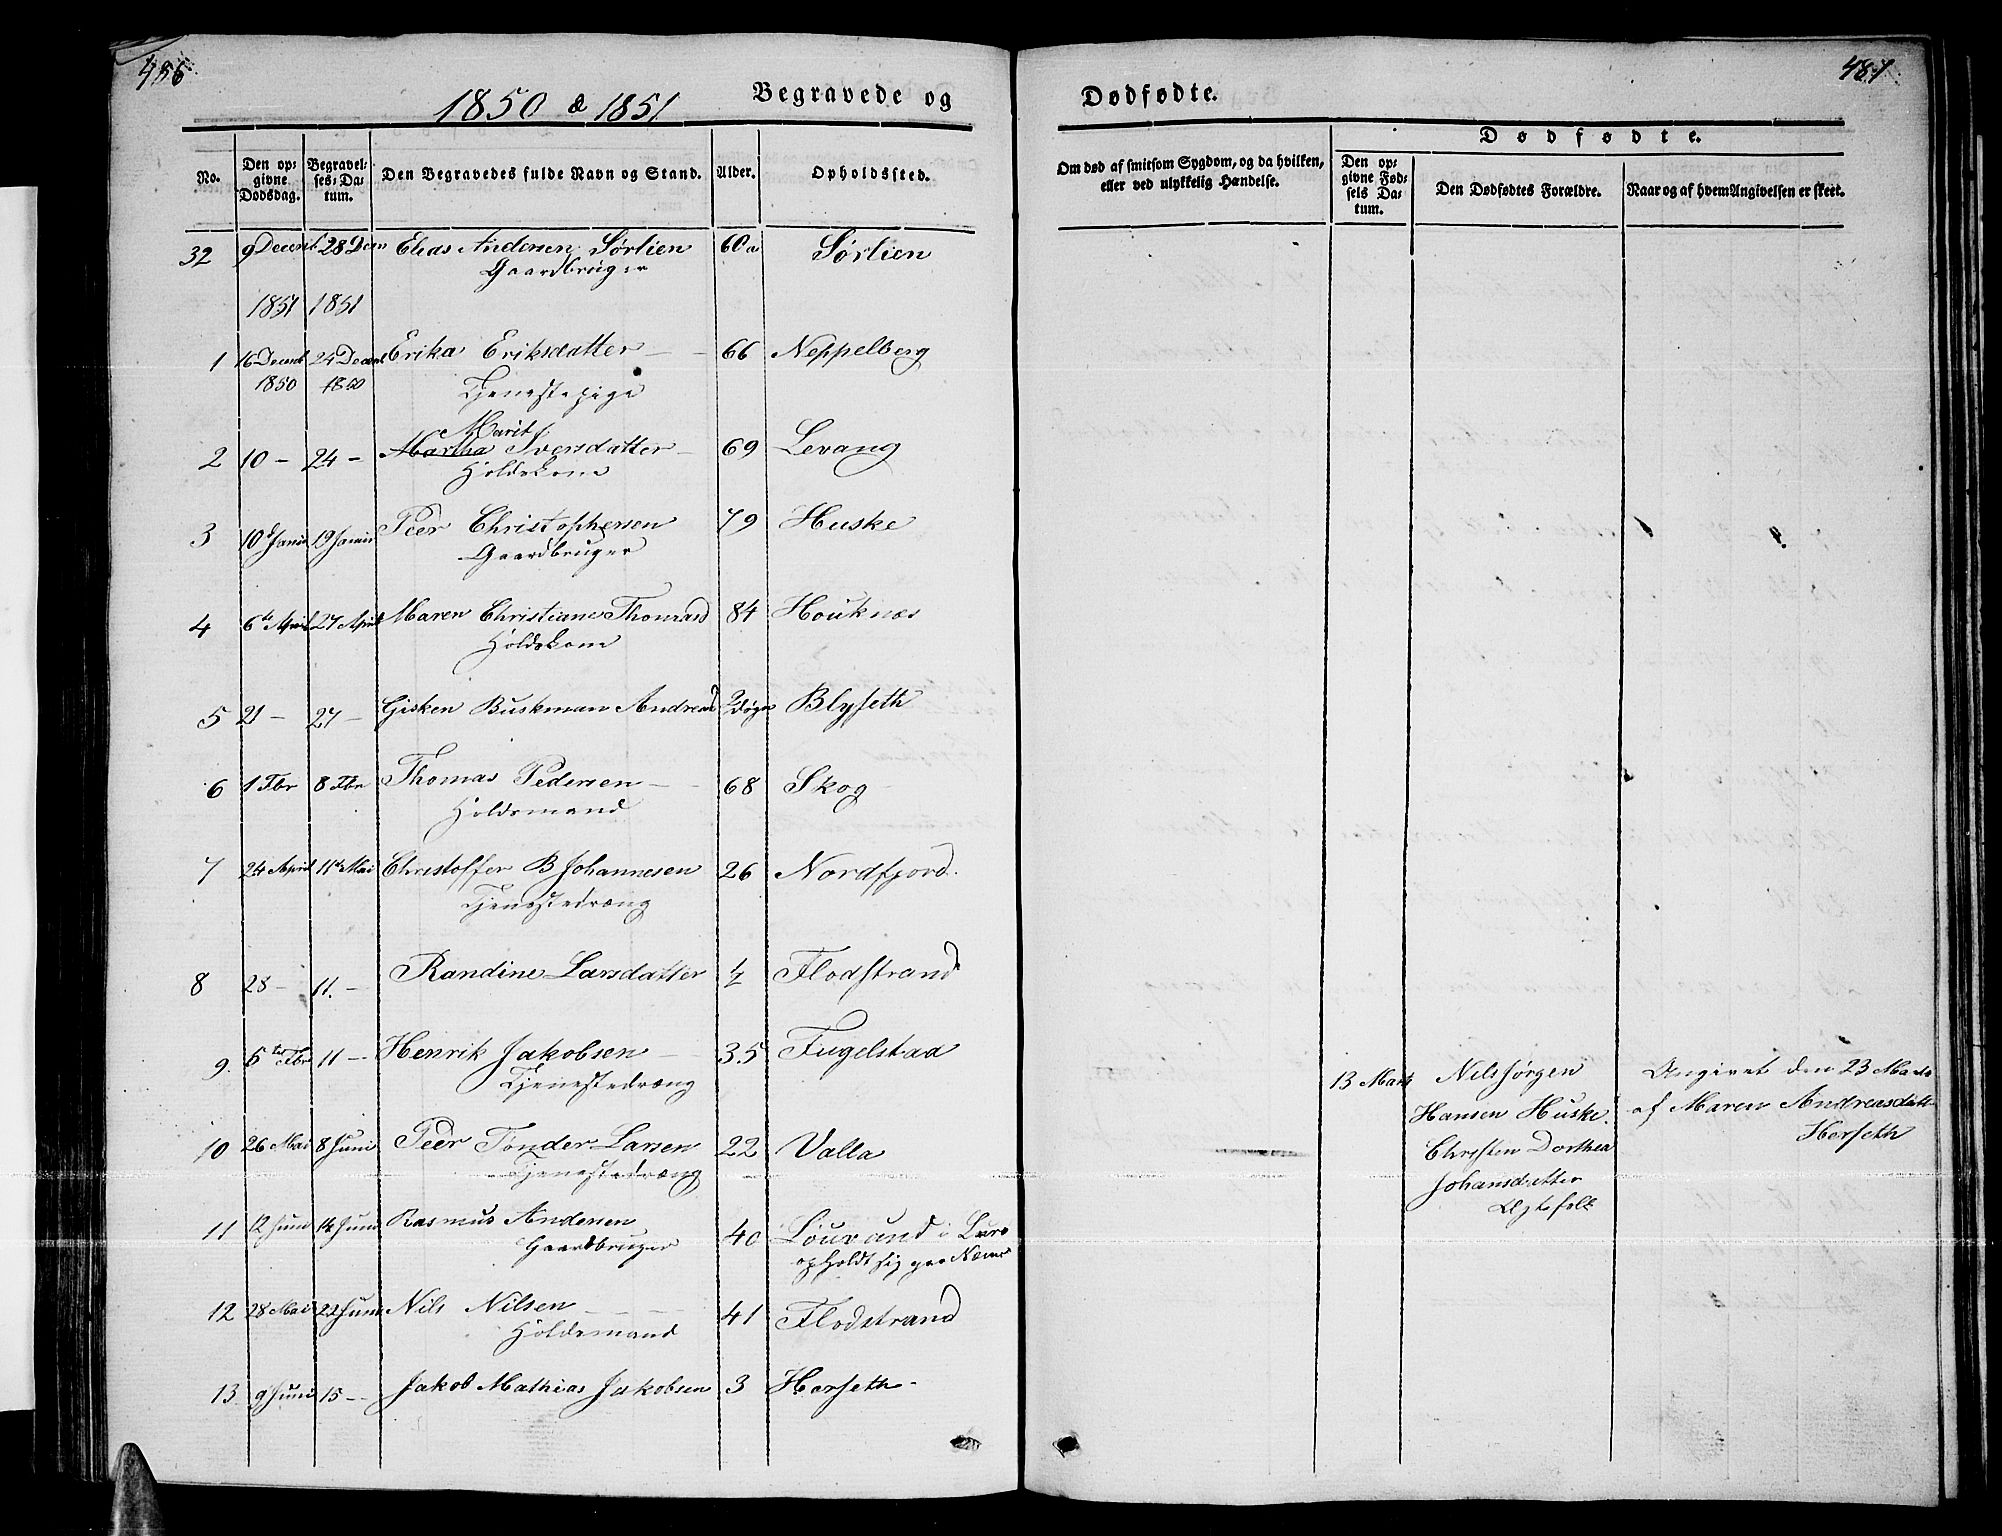 486
1850 & 1851
Begravede og
No.
Den opgivne Dødsdag.
Begravelses-Datum.
Den Begravedes fulde Navn og Stand.
Alder.
Opholdssted.
32 9 Decmb 28 Decm Elias Andersen Sørlien 60 a Sørlien
Gaardbruger
1851 1851
1 16 Decmb 24 Decmb Erika Eriksdatter 66 Neppelberg
1850 1850 Tjenestepige
Marit
2 10 – 24 – Martha Iversdatter – 69 Levang
Holdskone
3 10 Janu 19 Janu Peer Christophersen 79 Huske
Gaardbruger
4 6te April 27 April Maren Christiane Thomasd 84 Houknæs
Holdskone
5 21 – 27 – Gisken Buskman Andreasd 2 Døgn Blyseth
6 1 Fbr 8 Fbr Thomas Pedersen – 68 Skog
Holdsmand
7 24 April 11te Mai Christoffer B Johannesen 26 Nordfjord.
Tjenestedræng
8 28 – 11. – Randine Larsdatter ½ Flodstrand
9. 5te Fbr 11 – Henrik Jakobsen – 35 Fugelstad
Tjenestedræng
10 26 Mai 8 Juni Peer Tønder Larsen 22 Valla
Tjenestedræng
11 12 Juni 14 Juni Rasmus Andersen 40 Louvund i Lurø
Gaardbruger opholdt sig paa
12 28 Mai 22 Juni Nils Nilsen 41 Flodstrand
Holdsmand
13 9 Juni 15 – Jakob Mathias Jakobsen 3 Herseth
487
Dødfødte.
Om død af smitsom Sygdom, og da hvilken, eller ved ulykkelig Hændelse.
Dødfødte.
Den opgivne Fødsels Datum.
Den Dødfødtes Forældre.
Naar og af hvem Angivelsen er skeet.
13 Mart Nils Jørgen Angivet den 23 Marts
Hansen Huske. af Maren Andreasdatt
Christen Dorthea Herseth
Johansdatter
Ægtefolk